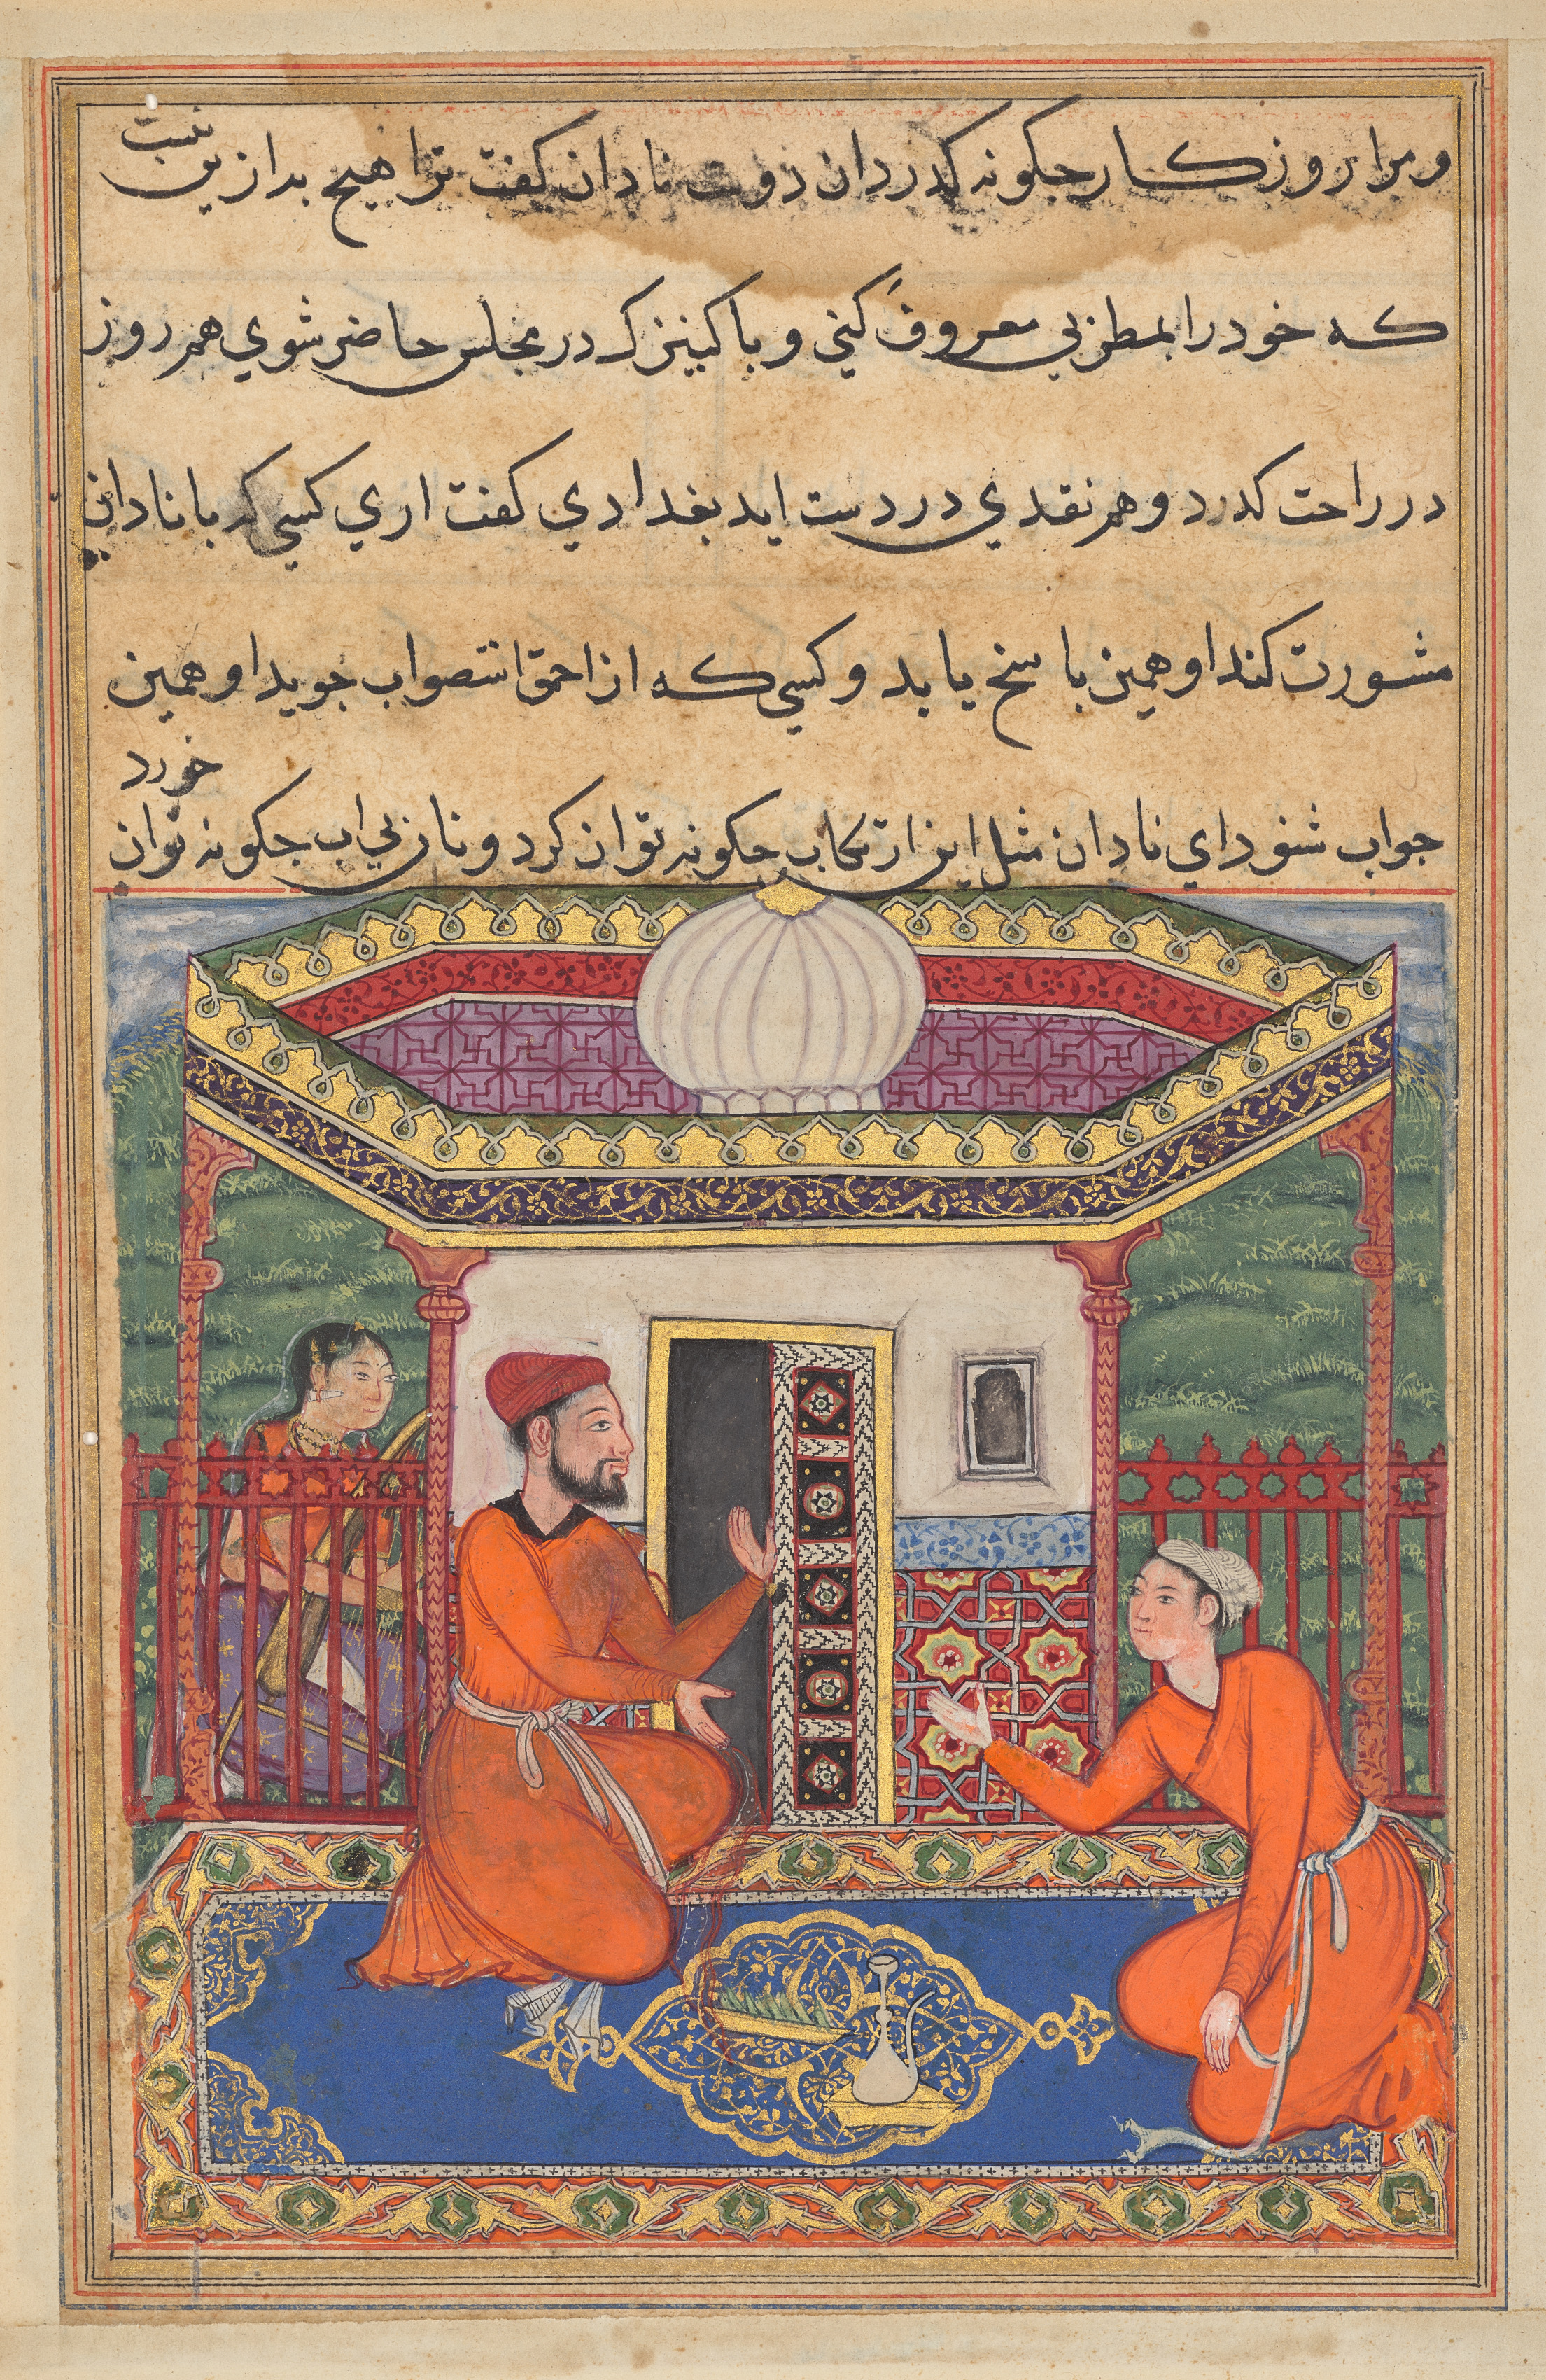 و مرا روزکار جکونه کذرد ان دوست نادان کفت ترا هیج به ازین نیست
که خود را بمطربی معروف کنی و با کنیزک در مجلس حاضر شوی هم روز
در راحت کذرد و هم نقدی در دست اید بغدادی کفت اری کسی که با نادان
مشورت کند او همین باسخ یابد و کسی که از احمق استصواب جوید او همین
جواب شنود ای نادان مثل این ارتکاب جکونه توان کرد و نان بی اب جکونه توان خورد